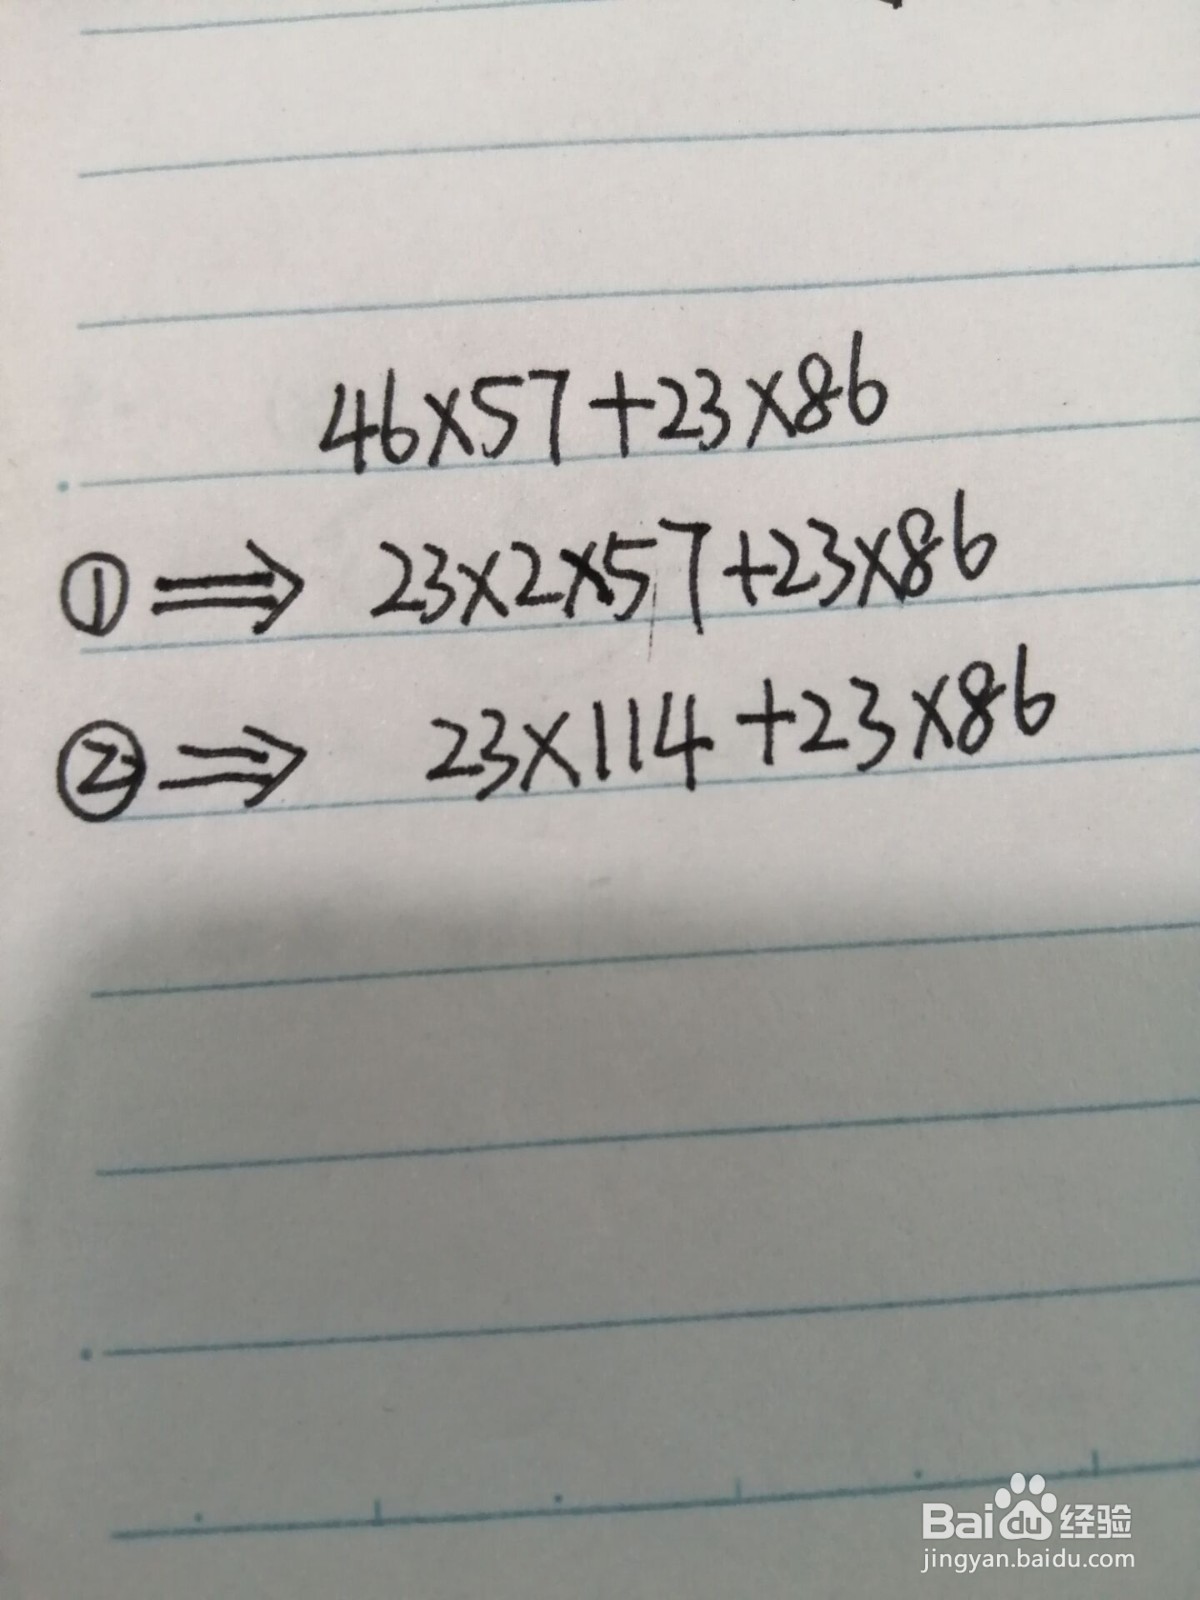 46×57+23×86
①⇒ 23×2×57+23×86
②⇒ 23×114+23×86
Baidu 经验
jingyan.baidu.com